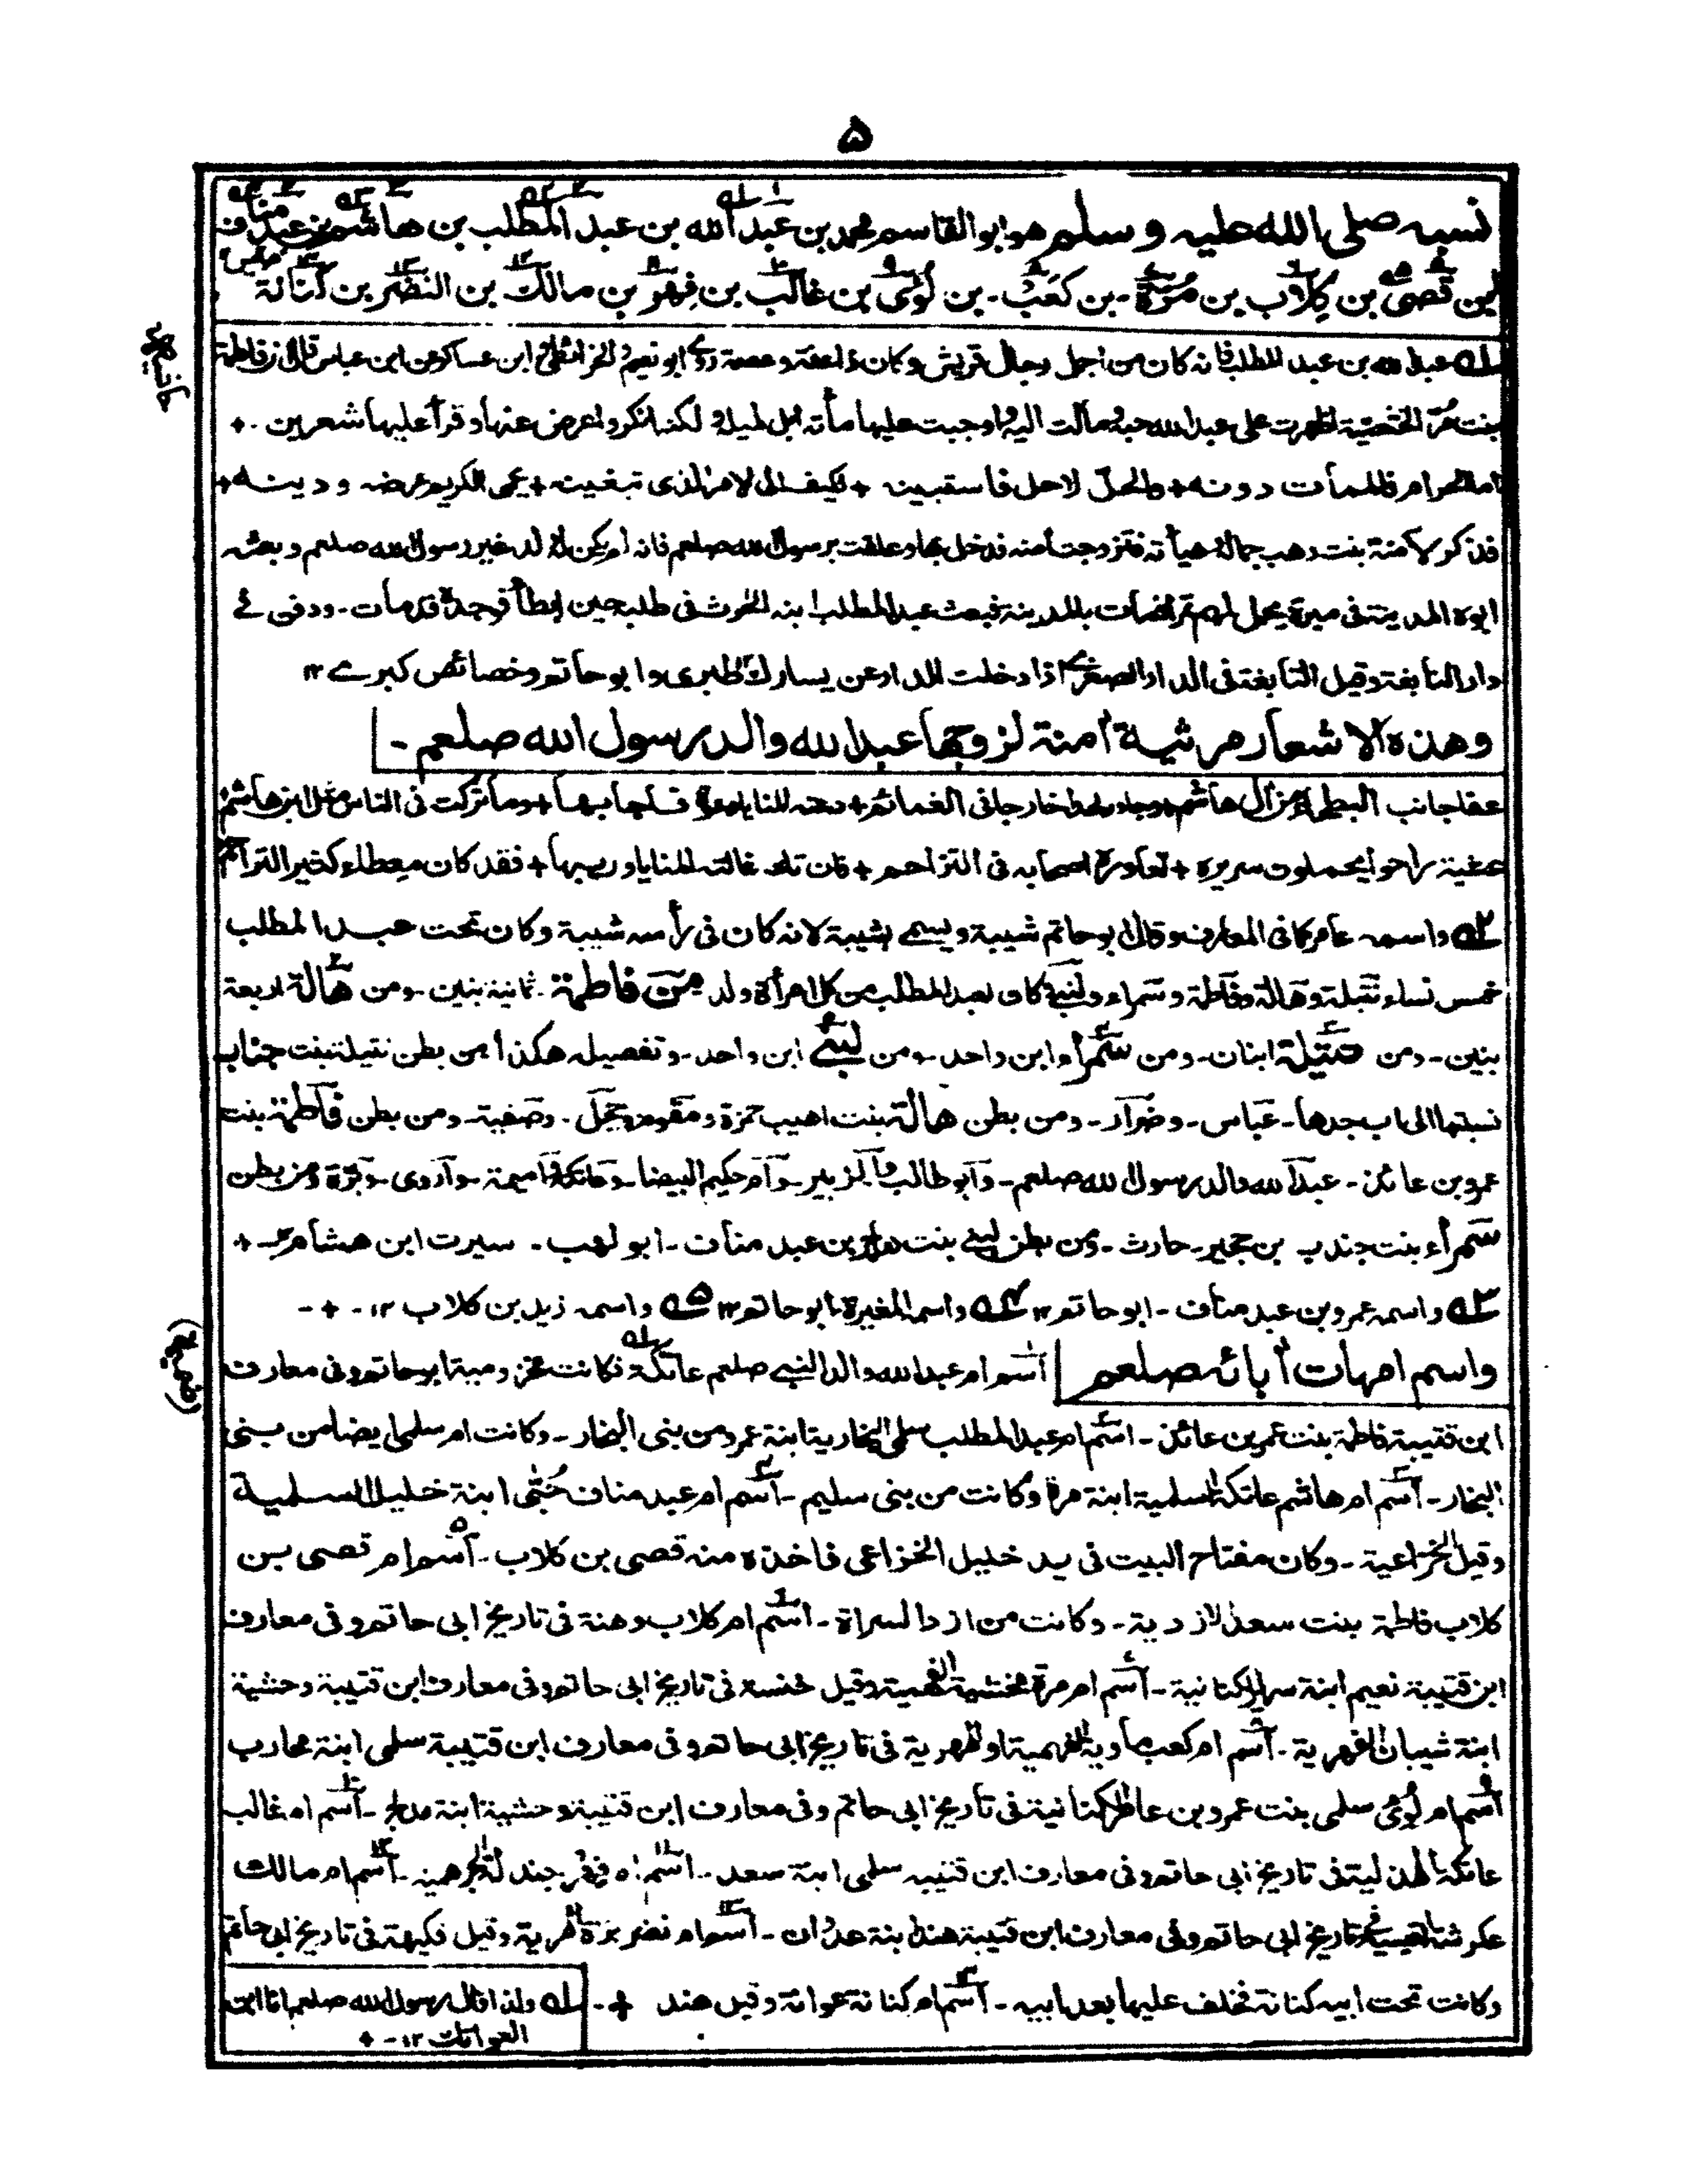 ۵
نسبہ صلی اللہ علیہ وسلم ھو ابو القاسم محمد بن عبد اللہ بن عبد المطلب بن ھاشم بن عبد مناف
ابن قصی بن کِلاب بن مُرّة - بن کعب - بن لوئی بن غالب بن فِھر بن مالک بن النضر بن کنانة
لہ عبد اللہ بن عبد المطلب فانہ کان من اجمل رجال قریش وکان ذا عفة وعصمة روی ابو نعیم والخرائطی ابن عساکر عن ابن عباس قال ان فاطمة
بنت مُرّ الخثعمیة اظھرت علی عبد اللہ حبہ ومالت الیہ واوجبت علیھا مأتہ ابل لمیلہ لکنہ انکر واعرض عنھا وقرأ علیھا شعرین ۔+
اما الحرام فالممات دونہ + والحل لاحل فاستبینہ + فکیف الی الامر الذی تبغینہ + یحمی الکریم عرضہ ودینہ +
فذکر لآمنة بنت وھب جمالہ وھیأتہ فتزوجت منہ فدخل بھا وعلقت برسول اللہ صلعم فانہ لم یکن لہ ولد غیر رسول اللہ صلعم وبعثہ
ابوہ المدینة فی میرة یحمل لھم تمرا فمات بالمدینة فبعث عبد المطلب ابنہ الحٰرث فی طلبہ حین ابطأ فوجدہ قد مات - ودفن فے
دار النابغة وقیل التابغة فی الدار الصغرے اذا دخلت الدار عن یسارک طبری وابو حاتم وخصائص کبرے ۱۲
وھذہ الاشعار مرثیة اٰمنة لزوجھا عبد اللہ والد رسول اللہ صلعم -
عفا جانب البطحاء من اٰل ھاشم + وجاور لحدا خارجا فی الغمائم + دعتہ المنایا دعوة فاجابھا + وما ترکت فی الناس مثل ابن ھاشم
عشیة راحوا یحملون سریرہ + تعاورہ اصحابہ فی التزاحم + فان تک غالتہ المنایا وریبھا + فقد کان معطاء کثیر التراحم
۲ہ واسمہ عامر کما فی المعارف وقال ابو حاتم شیبة ویسمی بشیبة لانہ کان فی رأسہ شیبة وکان تحت عبد المطلب
خمس نساء نتیلة وھالة وفاطمة وسمراء ولبنے کان لعبد المطلب من کل امرأة ولد فمن فاطمة ثمانیة بنین - ومن ھالة اربعة
بنین - ومن نتیلة ابنان - ومن سمراء ابن واحد - ومن لبنے ابن واحد - وتفصیلہ ھکذا من بطن نتیلة بنت جناب
نسبتھا الی اب جدھا - عباس - وضرار - ومن بطن ھالة بنت اھیب حمزة ومقوم وحجل - وصفیة - ومن بطن فاطمة بنت
عمرو بن عائذ - عبد اللہ والد رسول اللہ صلعم - وابو طالب والزبیر - وام حکیم البیضا - وعاتکة وامیمة - واروی - وبرّة ومن بطن
سمراء بنت جندب بن حجیر - حارث - ومن بطن لبنے بنت ھاجر بن عبد مناف - ابو لھب - سیرت ابن ھشام +
۳ہ واسمہ عمرو بن عبد مناف - ابو حاتم ۱۲ ۴ہ واسمہ المغیرة ابو حاتم ۱۲ ۵ہ واسمہ زید بن کلاب ۱۲ - + -
واسم امھات اٰبائہ صلعم | اسم ام عبد اللہ والد النبے صلعم عاتکة فکانت مخزومیة ابو حاتم وفی معارف
ابن قتیبة فاطمة بنت عمر بن عائذ - اسم ام عبد المطلب سلمی النجاریة ابنة عمرو من بنی النجار - وکانت ام سلمی ایضا من بنی
النجار - اسم ام ھاشم عاتکة السلمیة ابنة مرة وکانت من بنی سلیم - اسم ام عبد مناف حُبّٰی ابنة خلیل السلمیة
وقیل الخزاعیة - وکان مفتاح البیت فی ید خلیل الخزاعی فاخذہ منہ قصی بن کلاب - اسم ام قصی بن
کلاب فاطمة بنت سعد الازدیة - وکانت من ازد السراة - اسم ام کلاب وھنة فی تاریخ ابی حاتم وفی معارف
ابن قتیبة نعیم ابنة سریر الکنانیة - اسم ام مرة مخشیة الفھمیة وقیل خنسة فی تاریخ ابی حاتم وفی معارف ابن قتیبة وحشیة
ابنة شیبان الفھریة - اسم ام کعب ماویة الفھمیة او الفھریة فی تاریخ ابی حاتم وفی معارف ابن قتیبة سلمی ابنة محارب
اسم ام لوئی سلمی بنت عمرو بن عامر الکنانیة فی تأریخ ابی حاتم وفی معارف ابن قتیبة وحشیة ابنة مدلج - اسم ام غالب
عاتکة الھذلیة فی تاریخ ابی حاتم وفی معارف ابن قتیبہ سلمی ابنة سعد - اسم ام فھر جندلة الجرھمیہ - اسم ام مالک
عکرشة القیسیة فی تاریخ ابی حاتم وفی معارف ابن قتیبة ھند ابنة عدوان - اسم ام نضر برة المریة وقیل فکیھة فی تاریخ ابی حاتم
وکانت تحت ابیہ کنانة فخلف علیھا بعد ابیہ - اسم ام کنانة عوانة وقیل ھند + -
لہ ولذا قال رسول اللہ صلعم انا ابن
العواتک ۱۲ - +